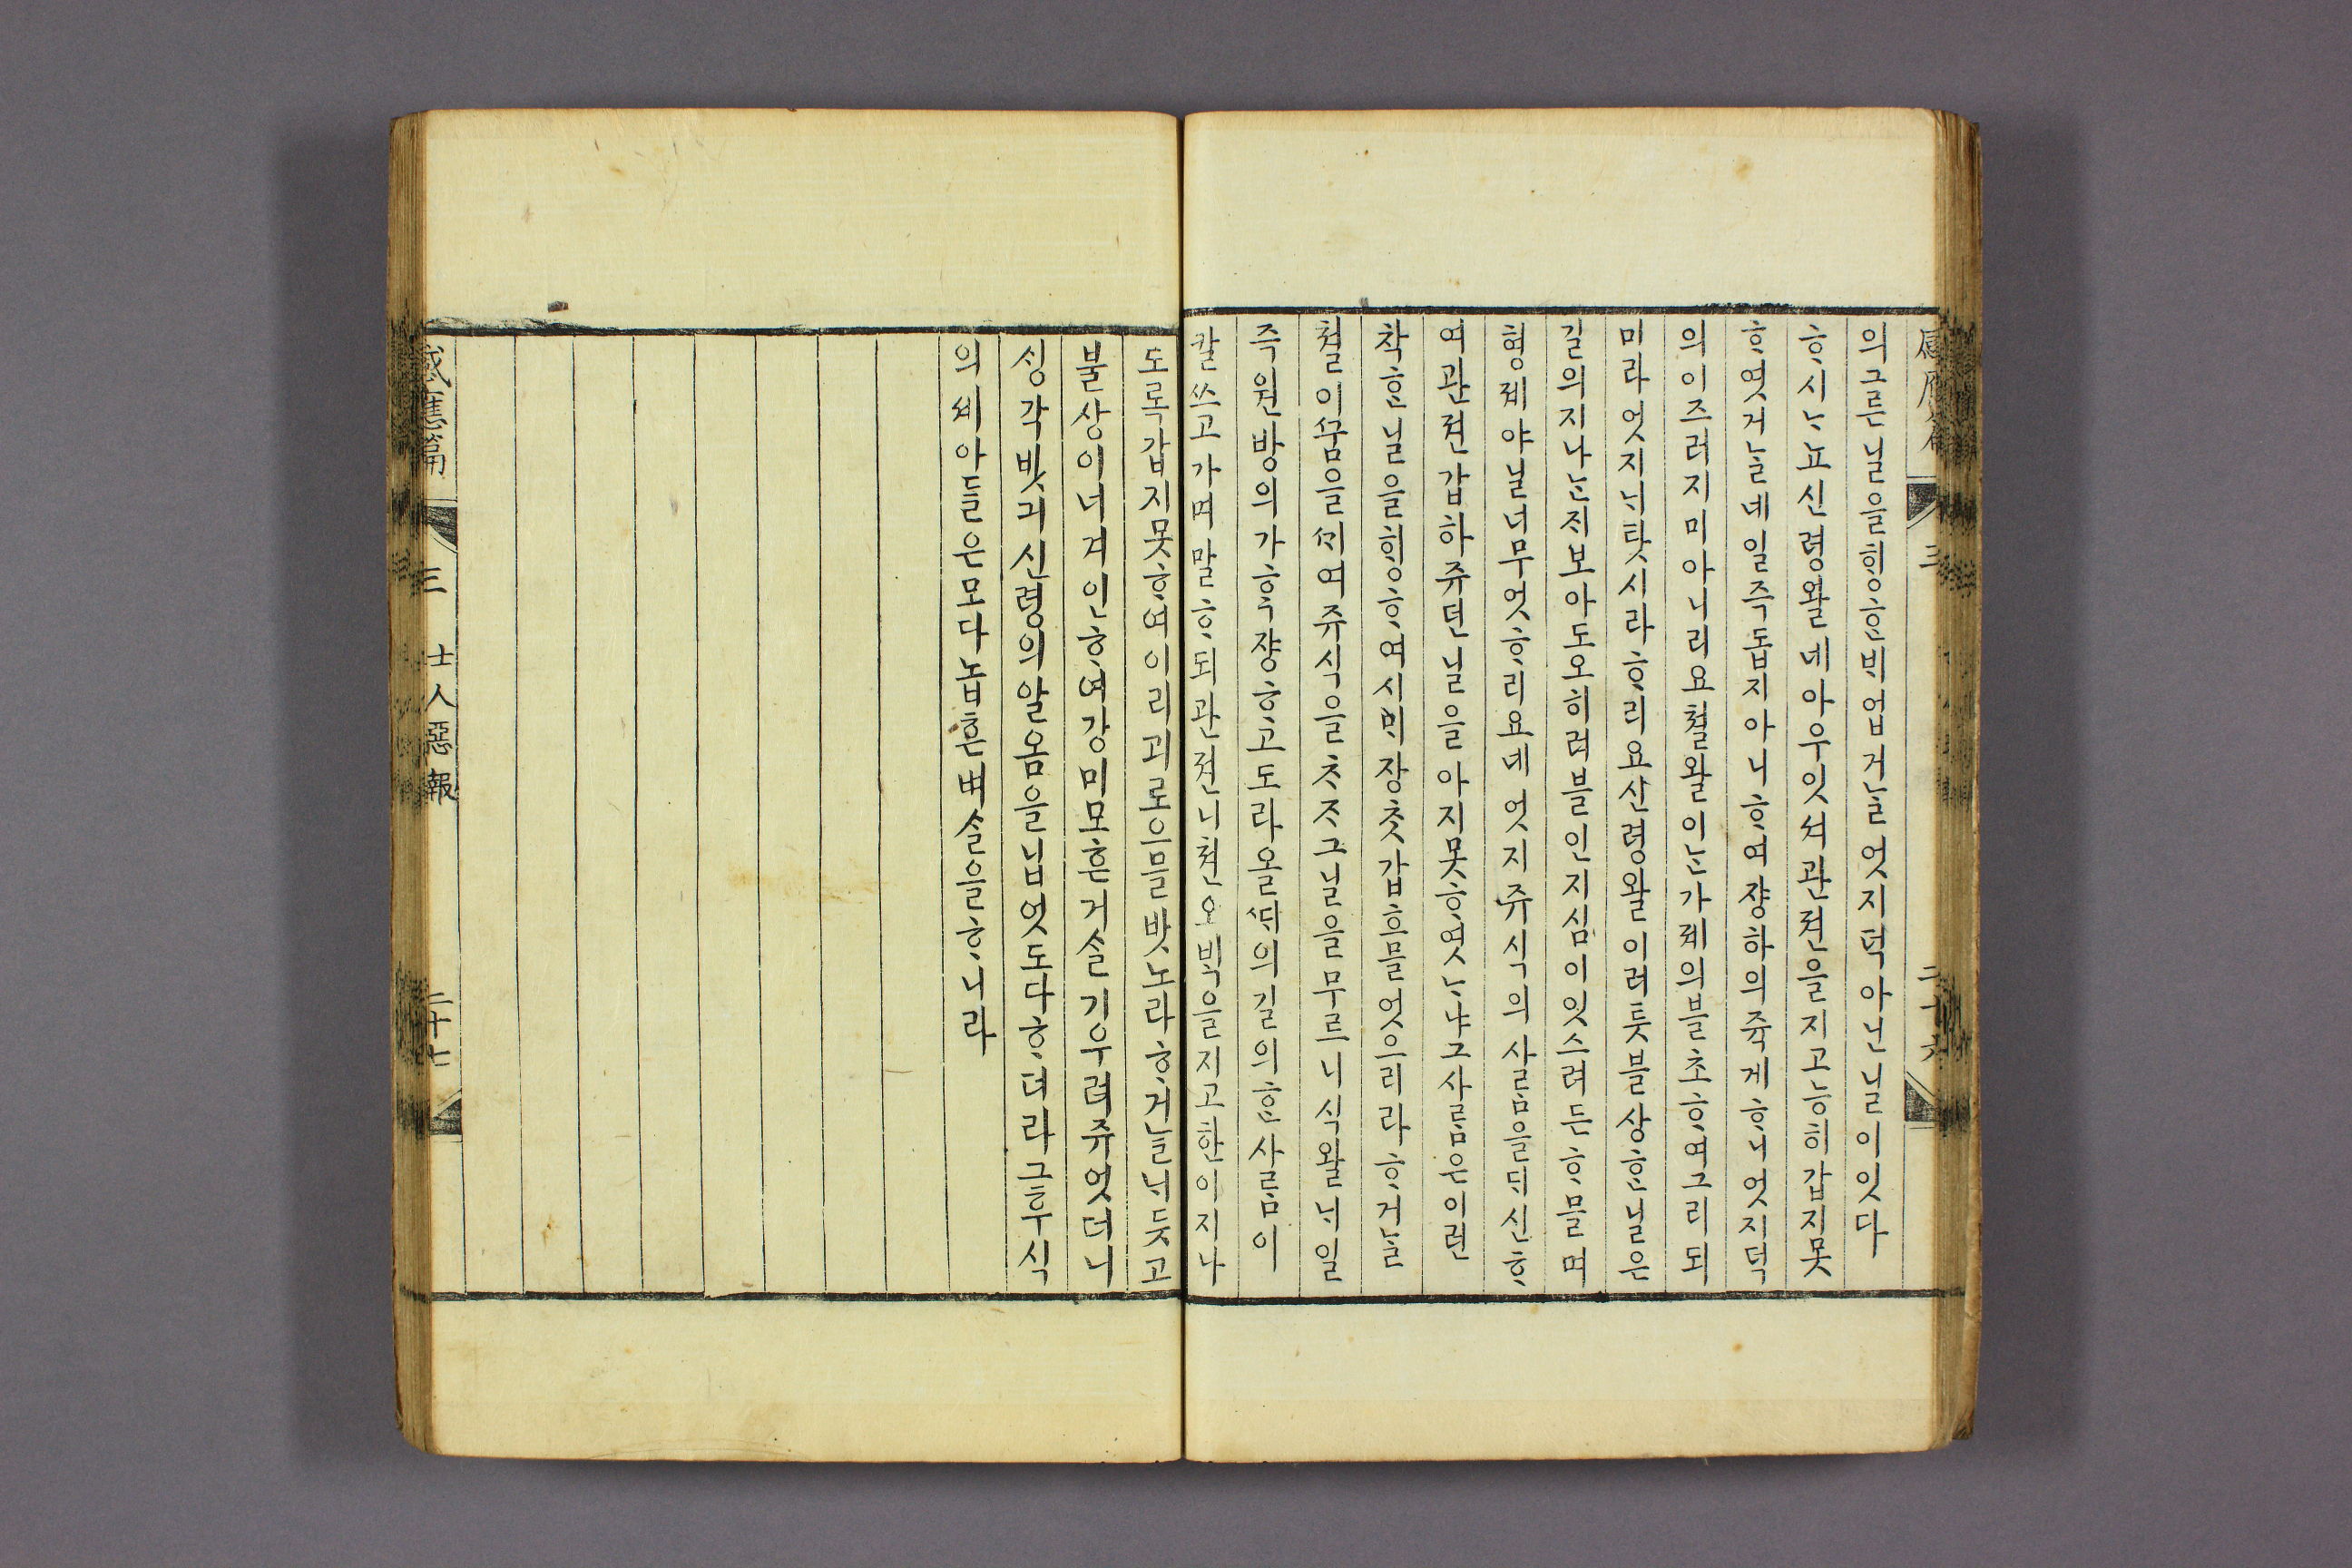 의그른닐을ᄒᆡᆼᄒᆞᆫᄇᆡ업거ᄂᆞᆯ엇지덕아닌닐이잇다
ᄒᆞ시ᄂᆞ뇨신령왈네아우잇셔관젼을지고능히갑지못
ᄒᆞ엿거ᄂᆞᆯ네일즉돕지아니ᄒᆞ여쟝하의쥭게ᄒᆞ니엇지덕
의이즈러지미아니리요쳘왈이ᄂᆞᆫ가졔의블초ᄒᆞ여그리되
미라엇지ᄂᆡ탓시라ᄒᆞ리요신령왈이려틋블상ᄒᆞᆫ닐은
길의지나ᄂᆞᆫᄌᆡ보아도오히려블인지심이잇스려든ᄒᆞ믈며
형졔야닐너무엇ᄒᆞ리요네엇지쥬식의사ᄅᆞᆷ을ᄃᆡ신ᄒᆞ
여관젼갑하쥬던닐을아지못ᄒᆞ엿ᄂᆞ냐그사ᄅᆞᆷ은이런
착ᄒᆞᆫ닐을ᄒᆡᆼᄒᆞ여시ᄆᆡ장ᄎᆞᆺ갑흐믈엇으리라ᄒᆞ거ᄂᆞᆯ
쳘이ᄭᅮᆷ을ᄭᆡ여쥬식을ᄎᆞᄌᆞ그닐을무르니식왈ᄂᆡ일
즉원방의가ᄒᆞᆨ쟝ᄒᆞ고도라올ᄯᆡ의길의ᄒᆞᆫ사ᄅᆞᆷ이
칼쓰고가며말ᄒᆞ되관젼니쳔오ᄇᆡᆨ을지고한이지나
도록갑지못ᄒᆞ여이리괴로으믈밧노라ᄒᆞ거ᄂᆞᆯᄂᆡ듯고
불상이너겨인ᄒᆞ여강ᄆᆡ모흔거슬기우려쥬엇더니
ᄉᆡᆼ각밧긔신령의알옴을닙엇도다ᄒᆞ더라그후식
의세아들은모다놉흔벼슬을ᄒᆞ니라
感應篇 三 二十六
感應篇 三 士人惡報 二十七